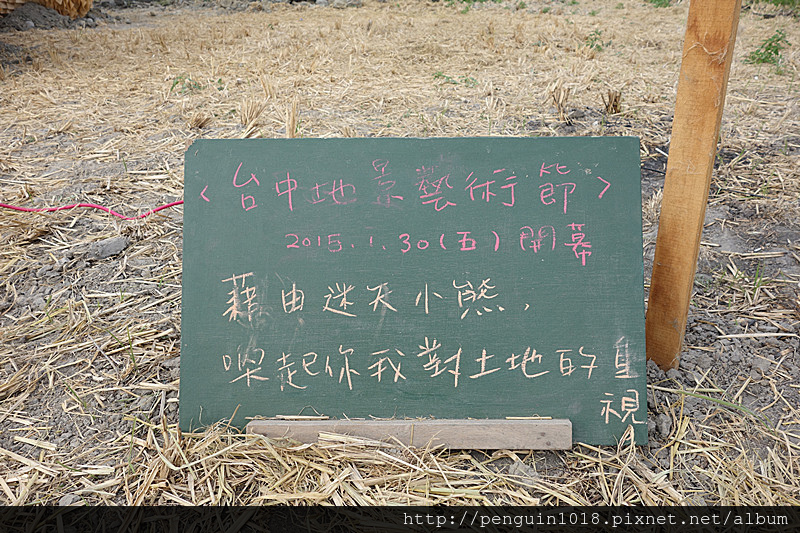 <台中地景藝術節>
2015.1.30(五)開幕
藉由迷天小熊,
喚起你我對土地的重
視
http://penguin1018.pixnet.net/album